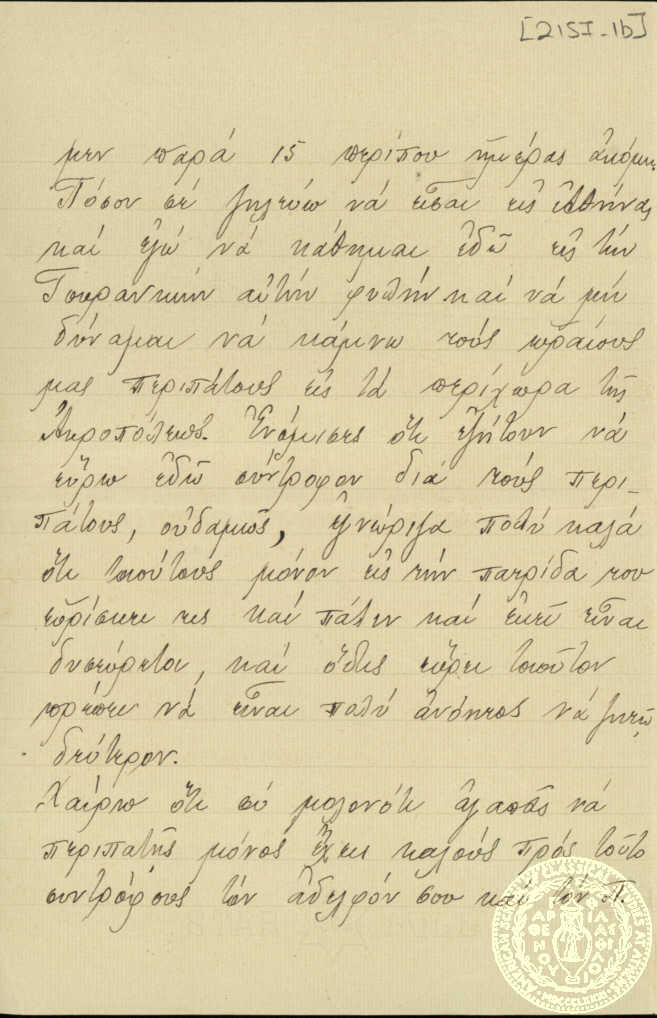 [215I-1b]
μεν παρά 15 περίπου ἡμέρας ἀκόμη.
Πόσον σέ ζηλεύω νά εἶσαι εἰς Ἀθήνας
καί ἐγώ νά κάθημαι ἐδῶ εἰς τήν
Τουρανικήν αὐτήν φυλήν καί νά μήν
δύναμαι νά κάμνω τούς ὡραίους
μας περιπάτους εἰς τά περίχωρα τῆς
Ἀκροπόλεως. Ἐνόμισες ὅτι ἐζήτουν νά
εὕρω ἐδῶ σύντροφον διά τούς περι-
πάτους, οὐδαμῶς, ἐγνώριζα πολύ καλά
ὅτι τοιούτους μόνον εἰς τήν πατρίδα του
εὑρίσκει τις καί πάλιν καί ἐκεῖ εἶναι
δυσεύρετοι, καί ὅστις εὕρει τοιοῦτον
πρέπει νά εἶναι πολύ ἀνόητος νά ζητῇ
δεύτερον.
Χαίρω ὅτι σύ μολονότι ἀγαπᾷς νά
περιπατῇς μόνος ἔχεις καλούς πρός τοῦτο
συντρόφους τόν ἀδελφόν σου καί τόν Π.
AMERICAN SCHOOL OF CLASSICAL STUDIES AT ATHENS
ΠΑΡΘΕΝΟΥ ΦΙΛΑΣ ΦΙΛΟΙ
MDCCCLXXXI